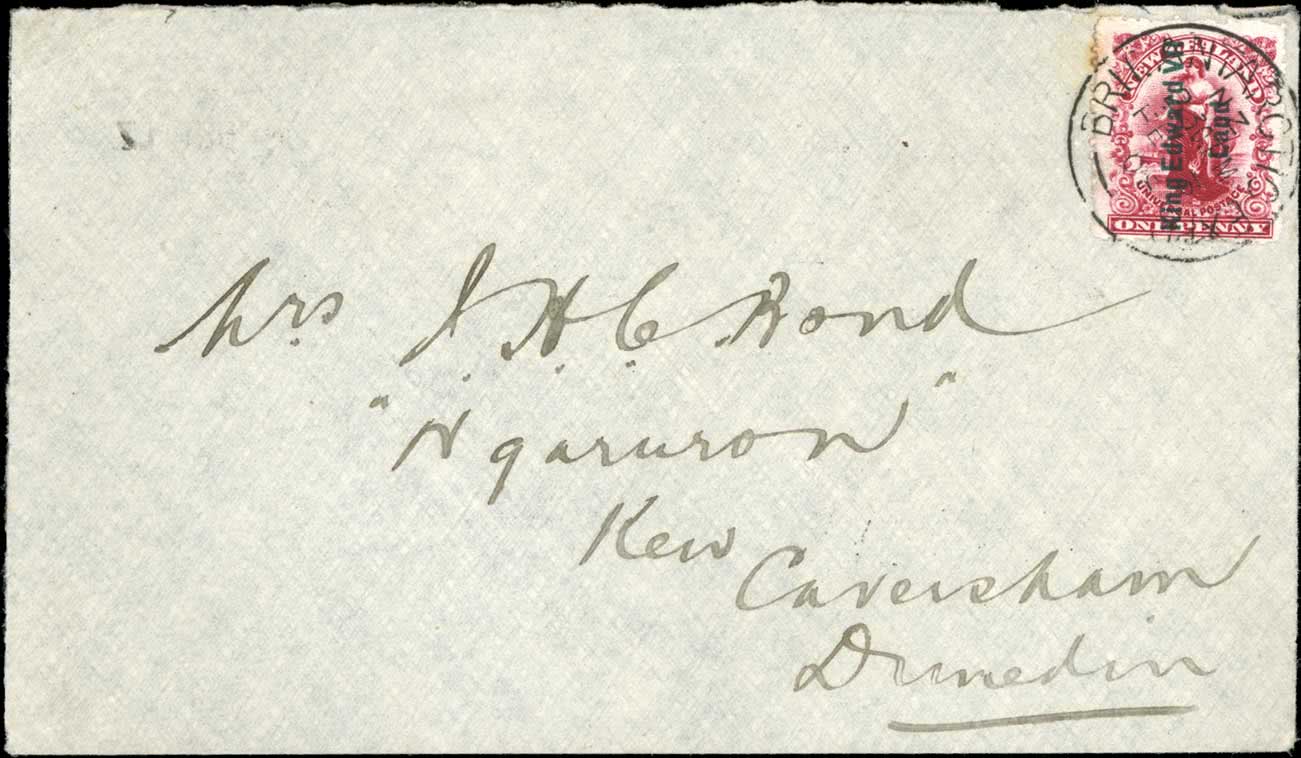 NEW ZEALAND
King Edward VII
Land
UNIVERSAL POSTAGE
ONE PENNY
BRIT. ANTARCTIC EXPD.
Mrs J. H. C. Bond
"Ngaruron"
Kew
Caversham
Dunedin